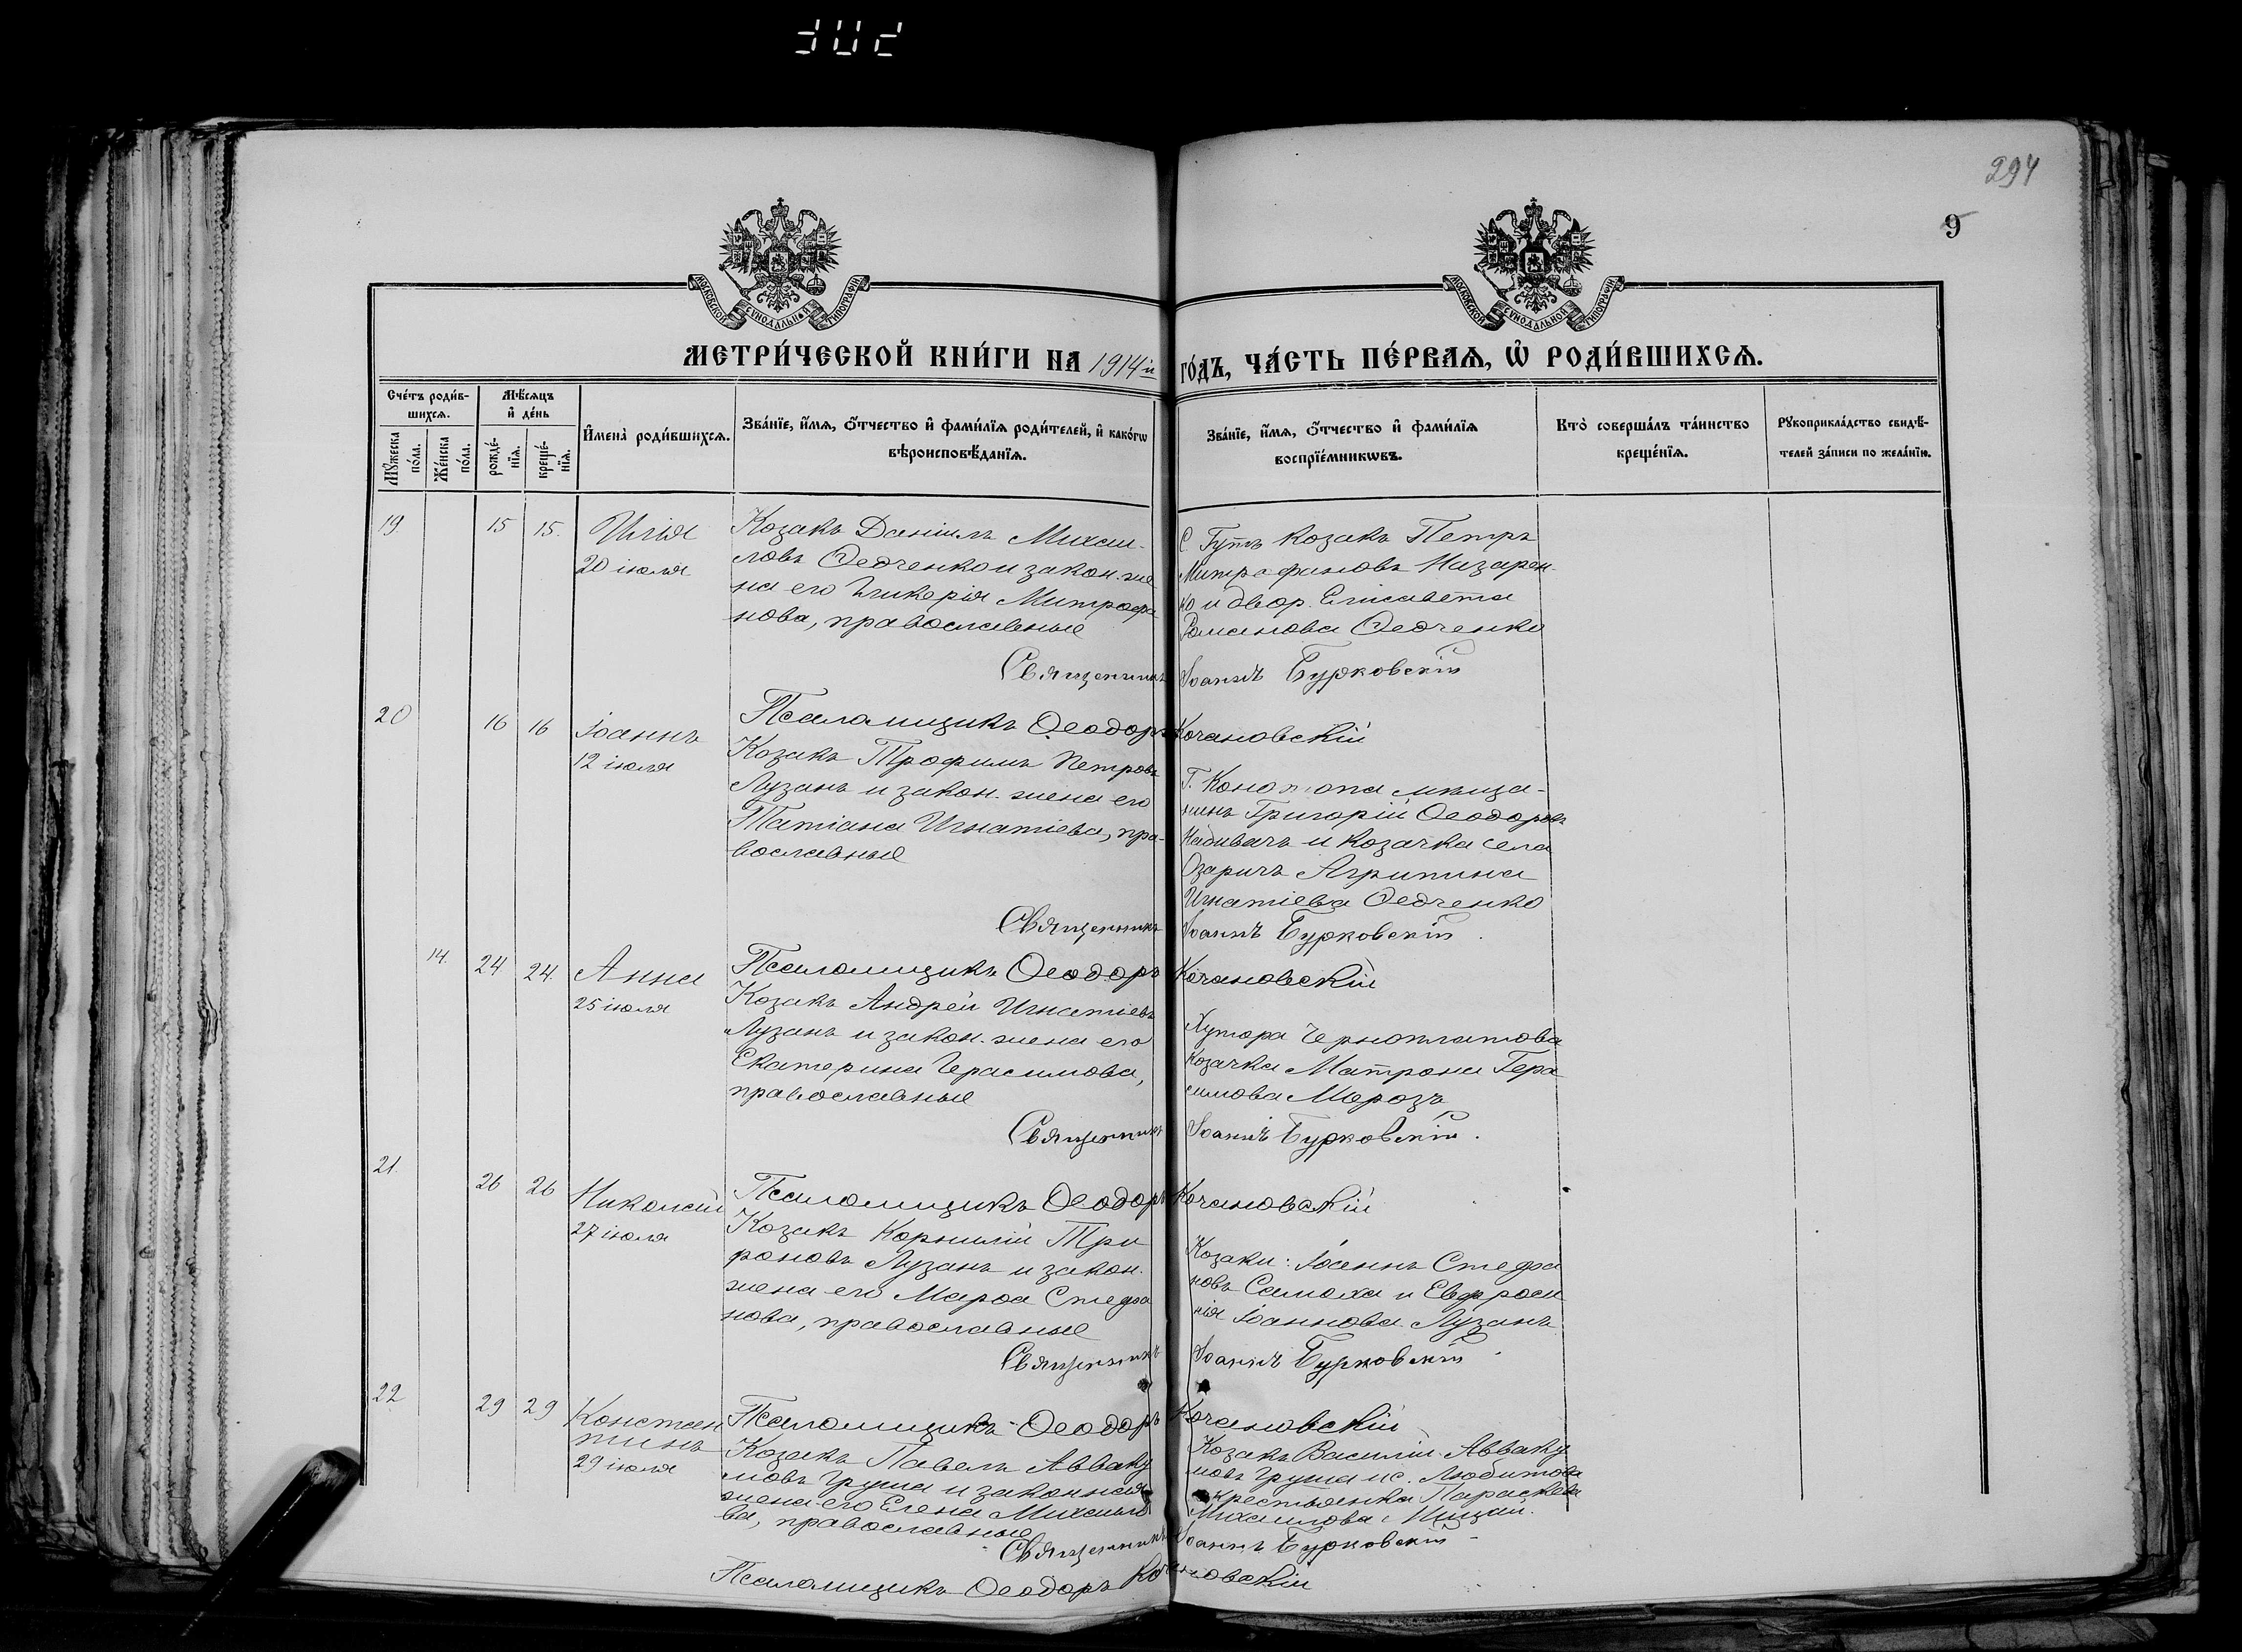 302
294
9
МОСКОВСКОЙ СУНОДАЛЬНОЙ ТИПОГРАФІИ
МОСКОВСКОЙ СУНОДАЛЬНОЙ ТИПОГРАФІИ
МЕТРИ́ЧЕСКОЙ КНИ́ГИ НА 1914й ГО́ДЪ, ЧА́СТЬ ПЕ́РВАѦ, Ѡ РОДИ́ВШИХСѦ.
Сче́тъ роди́в-
шихсѧ.
Мꙋ́жеска по́ла.
Же́нска по́ла.
Мѣ́сѧцъ
и҆ де́нь
рожде́-
нїѧ.
креще́-
нїѧ.
И҆мена̀ роди́вшихсѧ.
Зва́нїе, и҆́мѧ, ѻ҆́тчество и҆ фами́лїѧ роди́телей, и҆ како́гѡ
вѣроисповѣ́данїѧ.
Зва́нїе, и҆́мѧ, ѻ҆́тчество и҆ фами́лїѧ
воспрїе́мникѡвъ.
Кто̀ соверша́лъ та́инство
креще́нїѧ.
Рꙋкоприкла́дство свидѣ́-
телей за́писи по жела́нїю.
19. 15 15. Илія
20 іюля
Козакъ Даніилъ Михаи-
ловъ Ѳедченко и закон. же
на его Гликерія Митрофа
нова, православные
С. Гутъ козакъ Петръ
Митрофановъ Назарен-
ко и двор. Елисавета
Романова Ѳедченко
Священникъ Іоаннъ Бурковскій
Псаломщикъ Ѳеодоръ Кочановскій
20 16 16 Іоаннъ
12 іюля
Козакъ Трофимъ Петровъ
Лузанъ и закон. жена его
Татіана Игнатіева, пра-
вославные
Г. Конотопа мѣща-
нинъ Григорій Ѳеодоровъ
Надивачъ и козачка села
Озаричъ Агрипина
Игнатіева Ѳедченко
Священникъ Іоаннъ Бурковскій.
Псаломщикъ Ѳеодоръ Кочановскій
14. 24 24. Анна
25 іюля
Козакъ Андрей Игнатіевъ
Лузанъ и закон. жена его
Екатерина Герасимова,
православные
Хутора Черноплатова
козачка Матрона Гера
симова Морозъ
Священникъ Іоаннъ Бурковскій.
Псаломщикъ Ѳеодоръ Кочановскій
21. 26 26 Николай
27 іюля
Козакъ Корнилій Три
фоновъ Лузанъ и закон.
жена его Марѳа Стефа
нова, православные
Козаки: Іоаннъ Стефа
новъ Самоха и Евфроси
нія Іоаннова Лузанъ
Священникъ Іоаннъ Бурковскій.
Псаломщикъ Ѳеодоръ Кочановскій
22 29 29 Констан
тинъ
29 іюля
Козакъ Павелъ Авваку
мовъ Груша и законная
жена его Елена Михаило
ва, православные
Козакъ Василій Авваку
мовъ Груша и с. Любитова
крестьянка Параскева
Михаилова Мицай.
Священникъ Іоаннъ Бурковскій
Псаломщикъ Ѳеодоръ Кочановскій